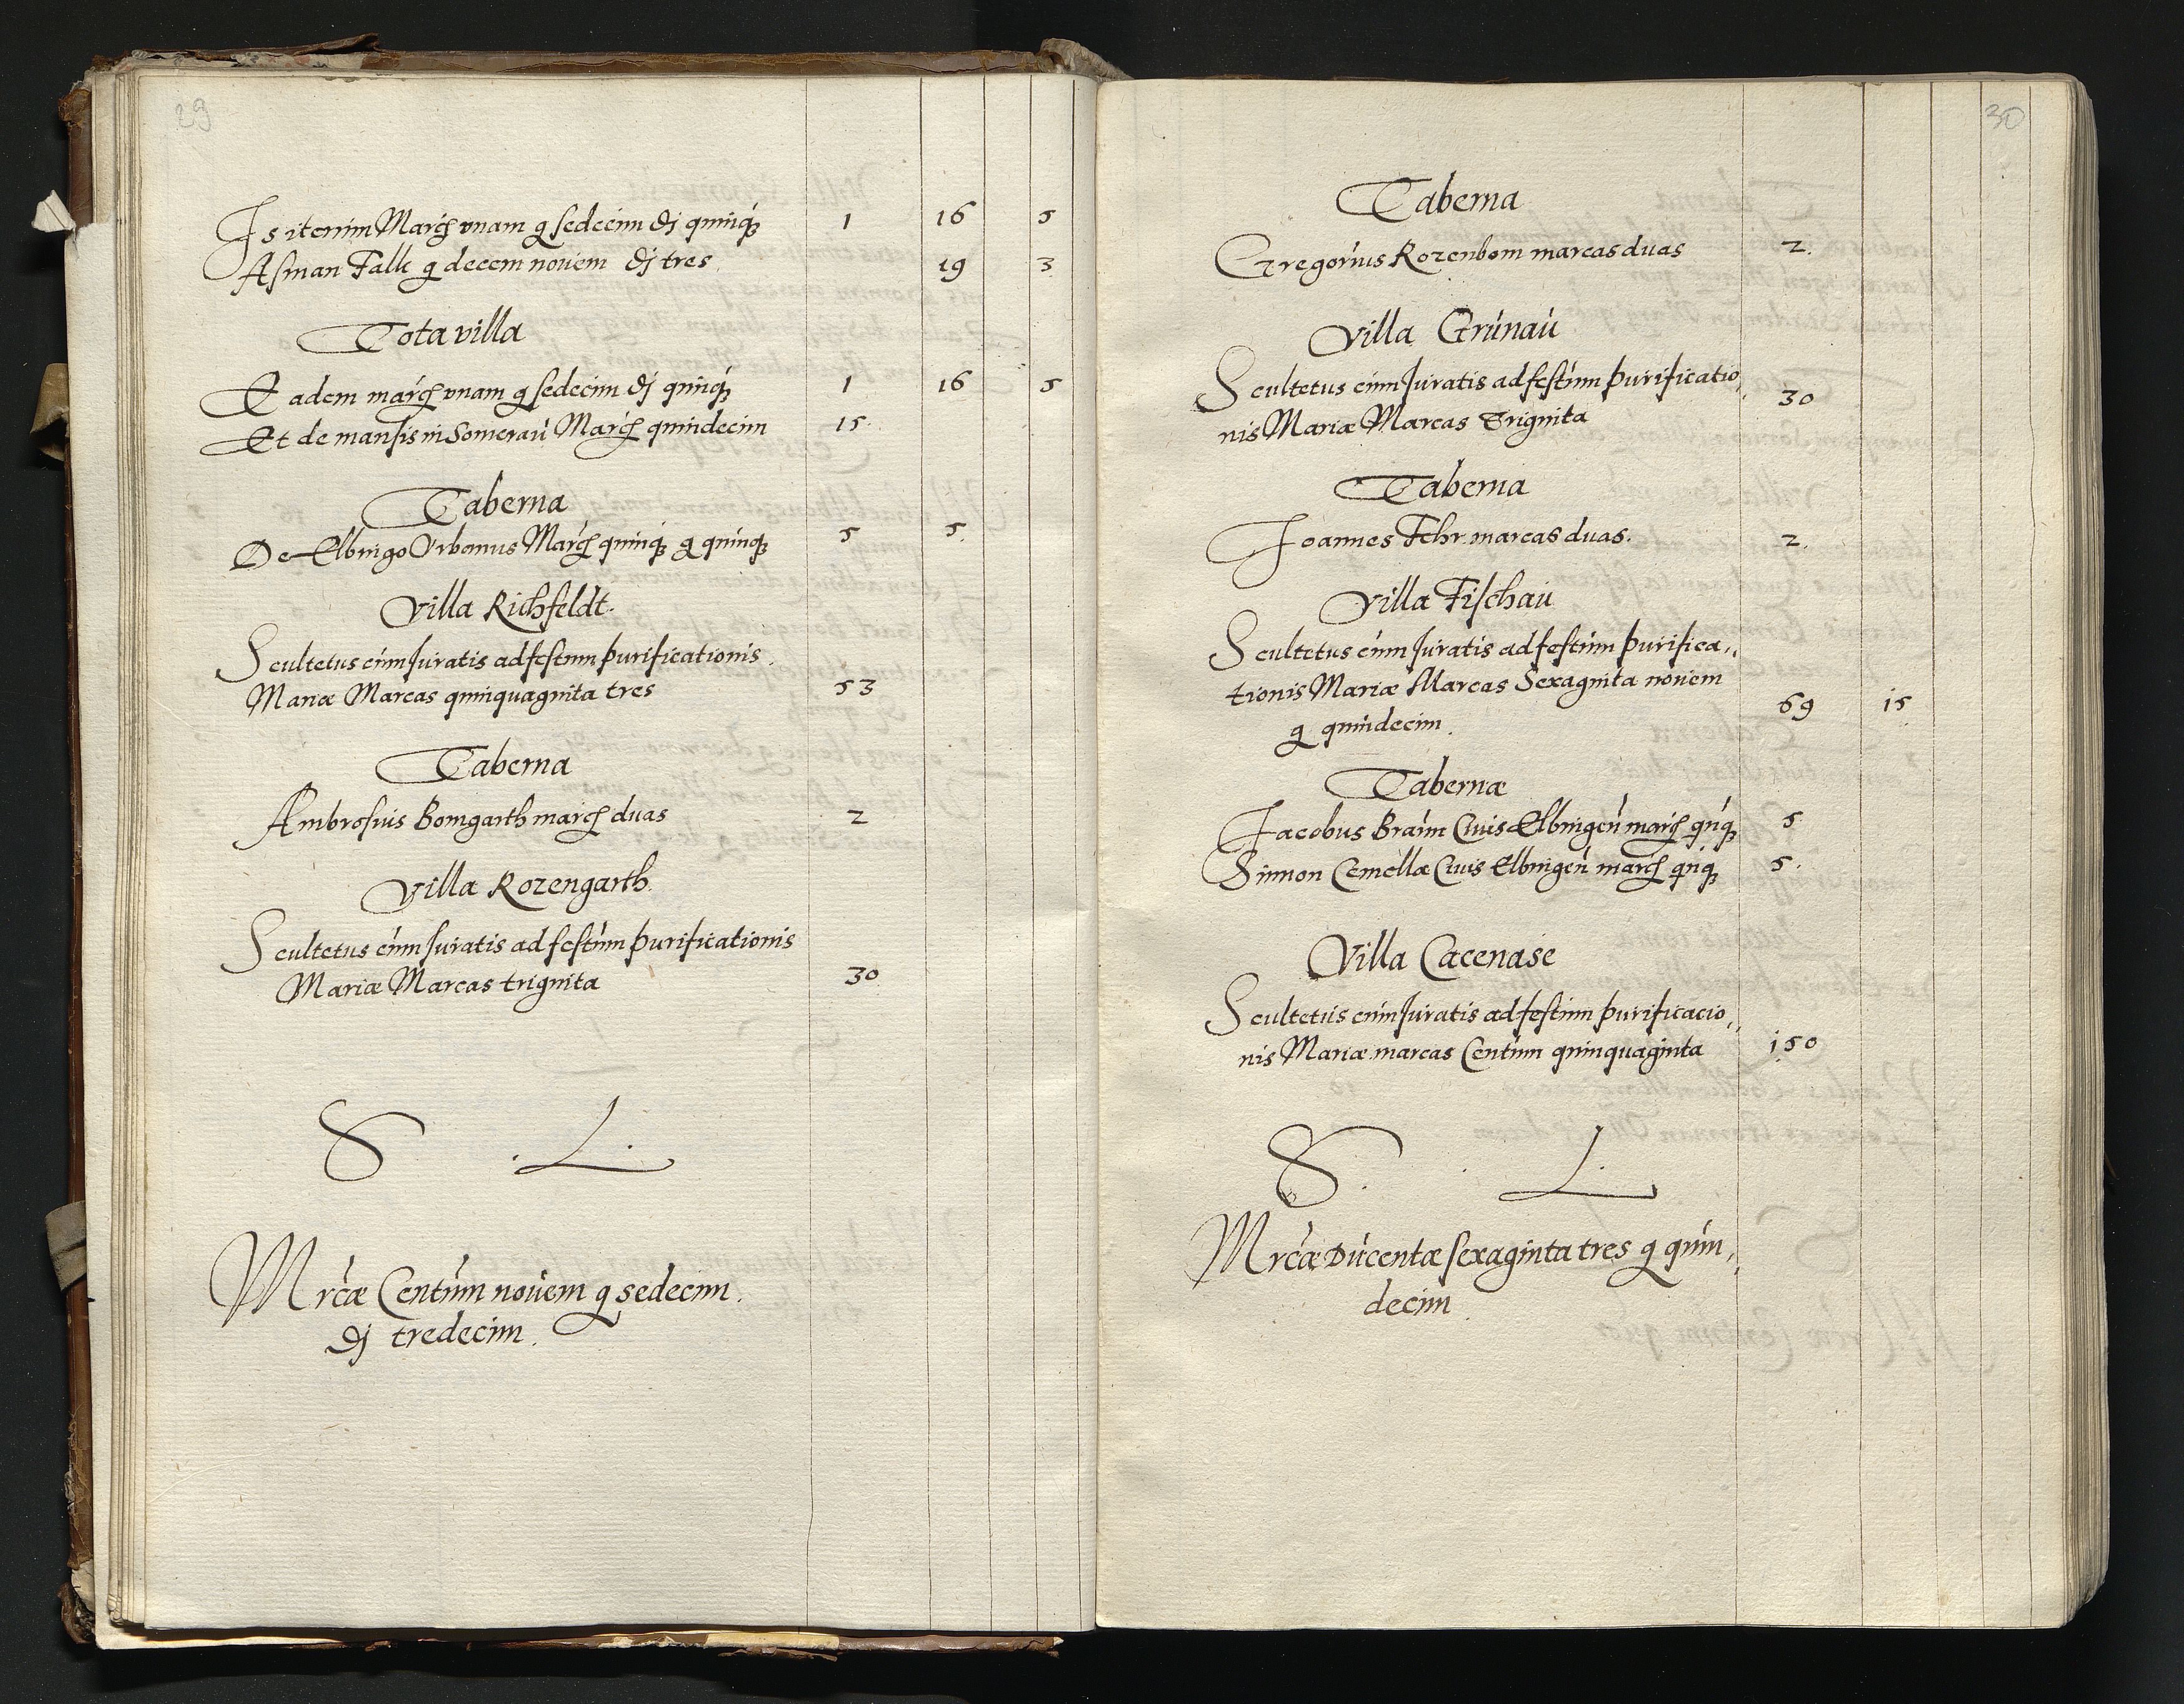 29
Is iterum Marcȩ vnam g sedecim dj quinqȝ 1 16 5
Asman Falk g decem nouem dj tres 19 3
Tota villa
Eadem marcȩ vnam g sedecim dj quinqȝ 1 16 5
Et de mansis in Someraú Marcȩ quindecim 15.
Taberna
De Elbingo Vrbanus Marcȩ quinqȝ g quinqȝ 5 5.
Villa Richfeldt.
Scultetus cúm Iuratis ad festum purificationis
Mariæ Marcas quinquaginta tres 53
Taberna
Ambrosius Bomgarth marcȩ duas 2
Villa Rozengarth
Scultetus cúm Iuratis ad festúm purificationis
Mariæ Marcas triginta 30
S . L.
Mrcæ Centúm nouem g sedecim.
dj tredecim.
30
Taberna
Gregorius Rozenbom marcas duas 2.
Villa Grúnaú
Scultetus cúm Iuratis ad festúm purificatio,,
nis Mariæ Marcas Triginta 30
Taberna
Joannes Fehr marcas duas. 2.
Villa Fischaú
Scultetus cúm Iuratis ad festúm purifica,,
tionis Mariæ Marcas Sexaginta nouem
g quindecim. 69 15
Tabernæ
Jacobus Braún Ciuis Elbingeń marcȩ qúqȝ 5
Simon Cemellæ Ciuis Elbingeń marcȩ qúqȝ 5.
Villa Cacenase
Scultetus cúm Iuratis ad festúm purificacio,,
nis Mariæ marcas Centúm quinquaginta 150
S. . L.
Mrcæ Dúcentæ sexaginta tres g quin,,
decim.